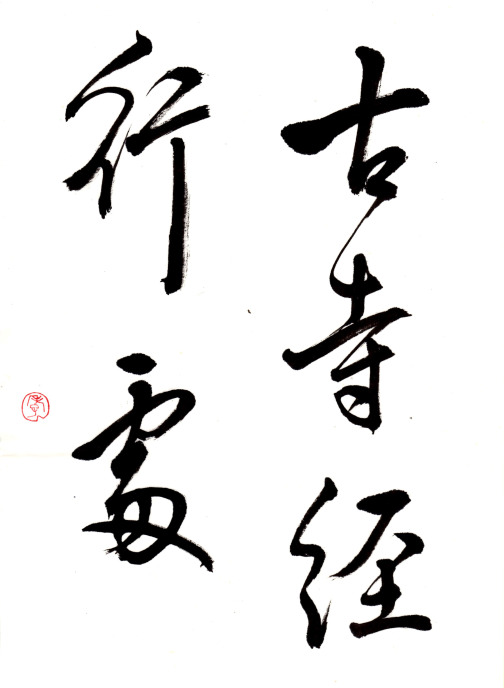 古寺経
行處